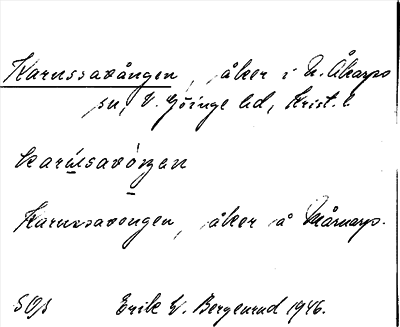 Karussavången, åker i N. Åkarps
sn, V. Göinge hd, Krist. l.
karúlsavòŋen
Karussavongen, åker å Mårnarp.
SOſs Erik W. Bergenrud 1946.